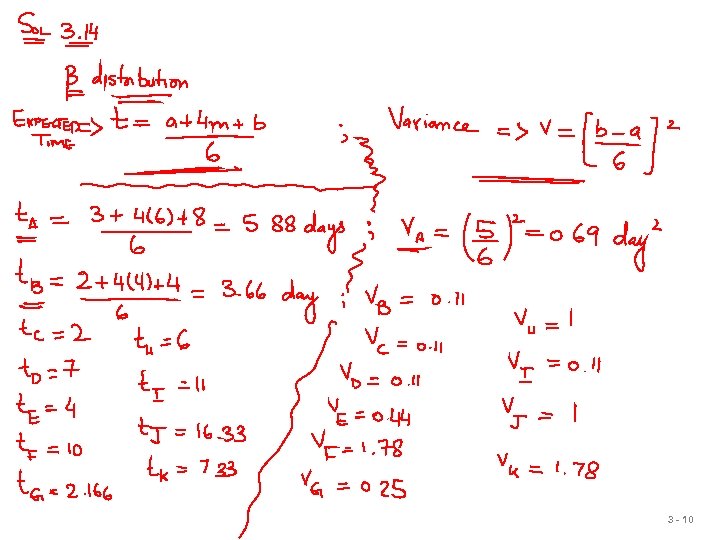 SOL 3.14
β distribution
EXPECTED TIME => t = a+4m+b / 6 ; Variance => V = [b-a / 6]²
tA = 3+4(6)+8 / 6 = 5 88 days ; VA = (5/6)² = 0 69 day²
tB = 2+4(4)+4 / 6 = 3.66 day ; VB = 0.11
tC = 2 tH = 6 VC = 0.11 VH = 1
tD = 7 tI = 11 VD = 0.11 VI = 0.11
tE = 4 tJ = 16.33 VE = 0.44 VJ = 1
tF = 10 tK = 7 33 VF = 1.78 VK = 1.78
tG = 2.166 VG = 0 25
3 - 10